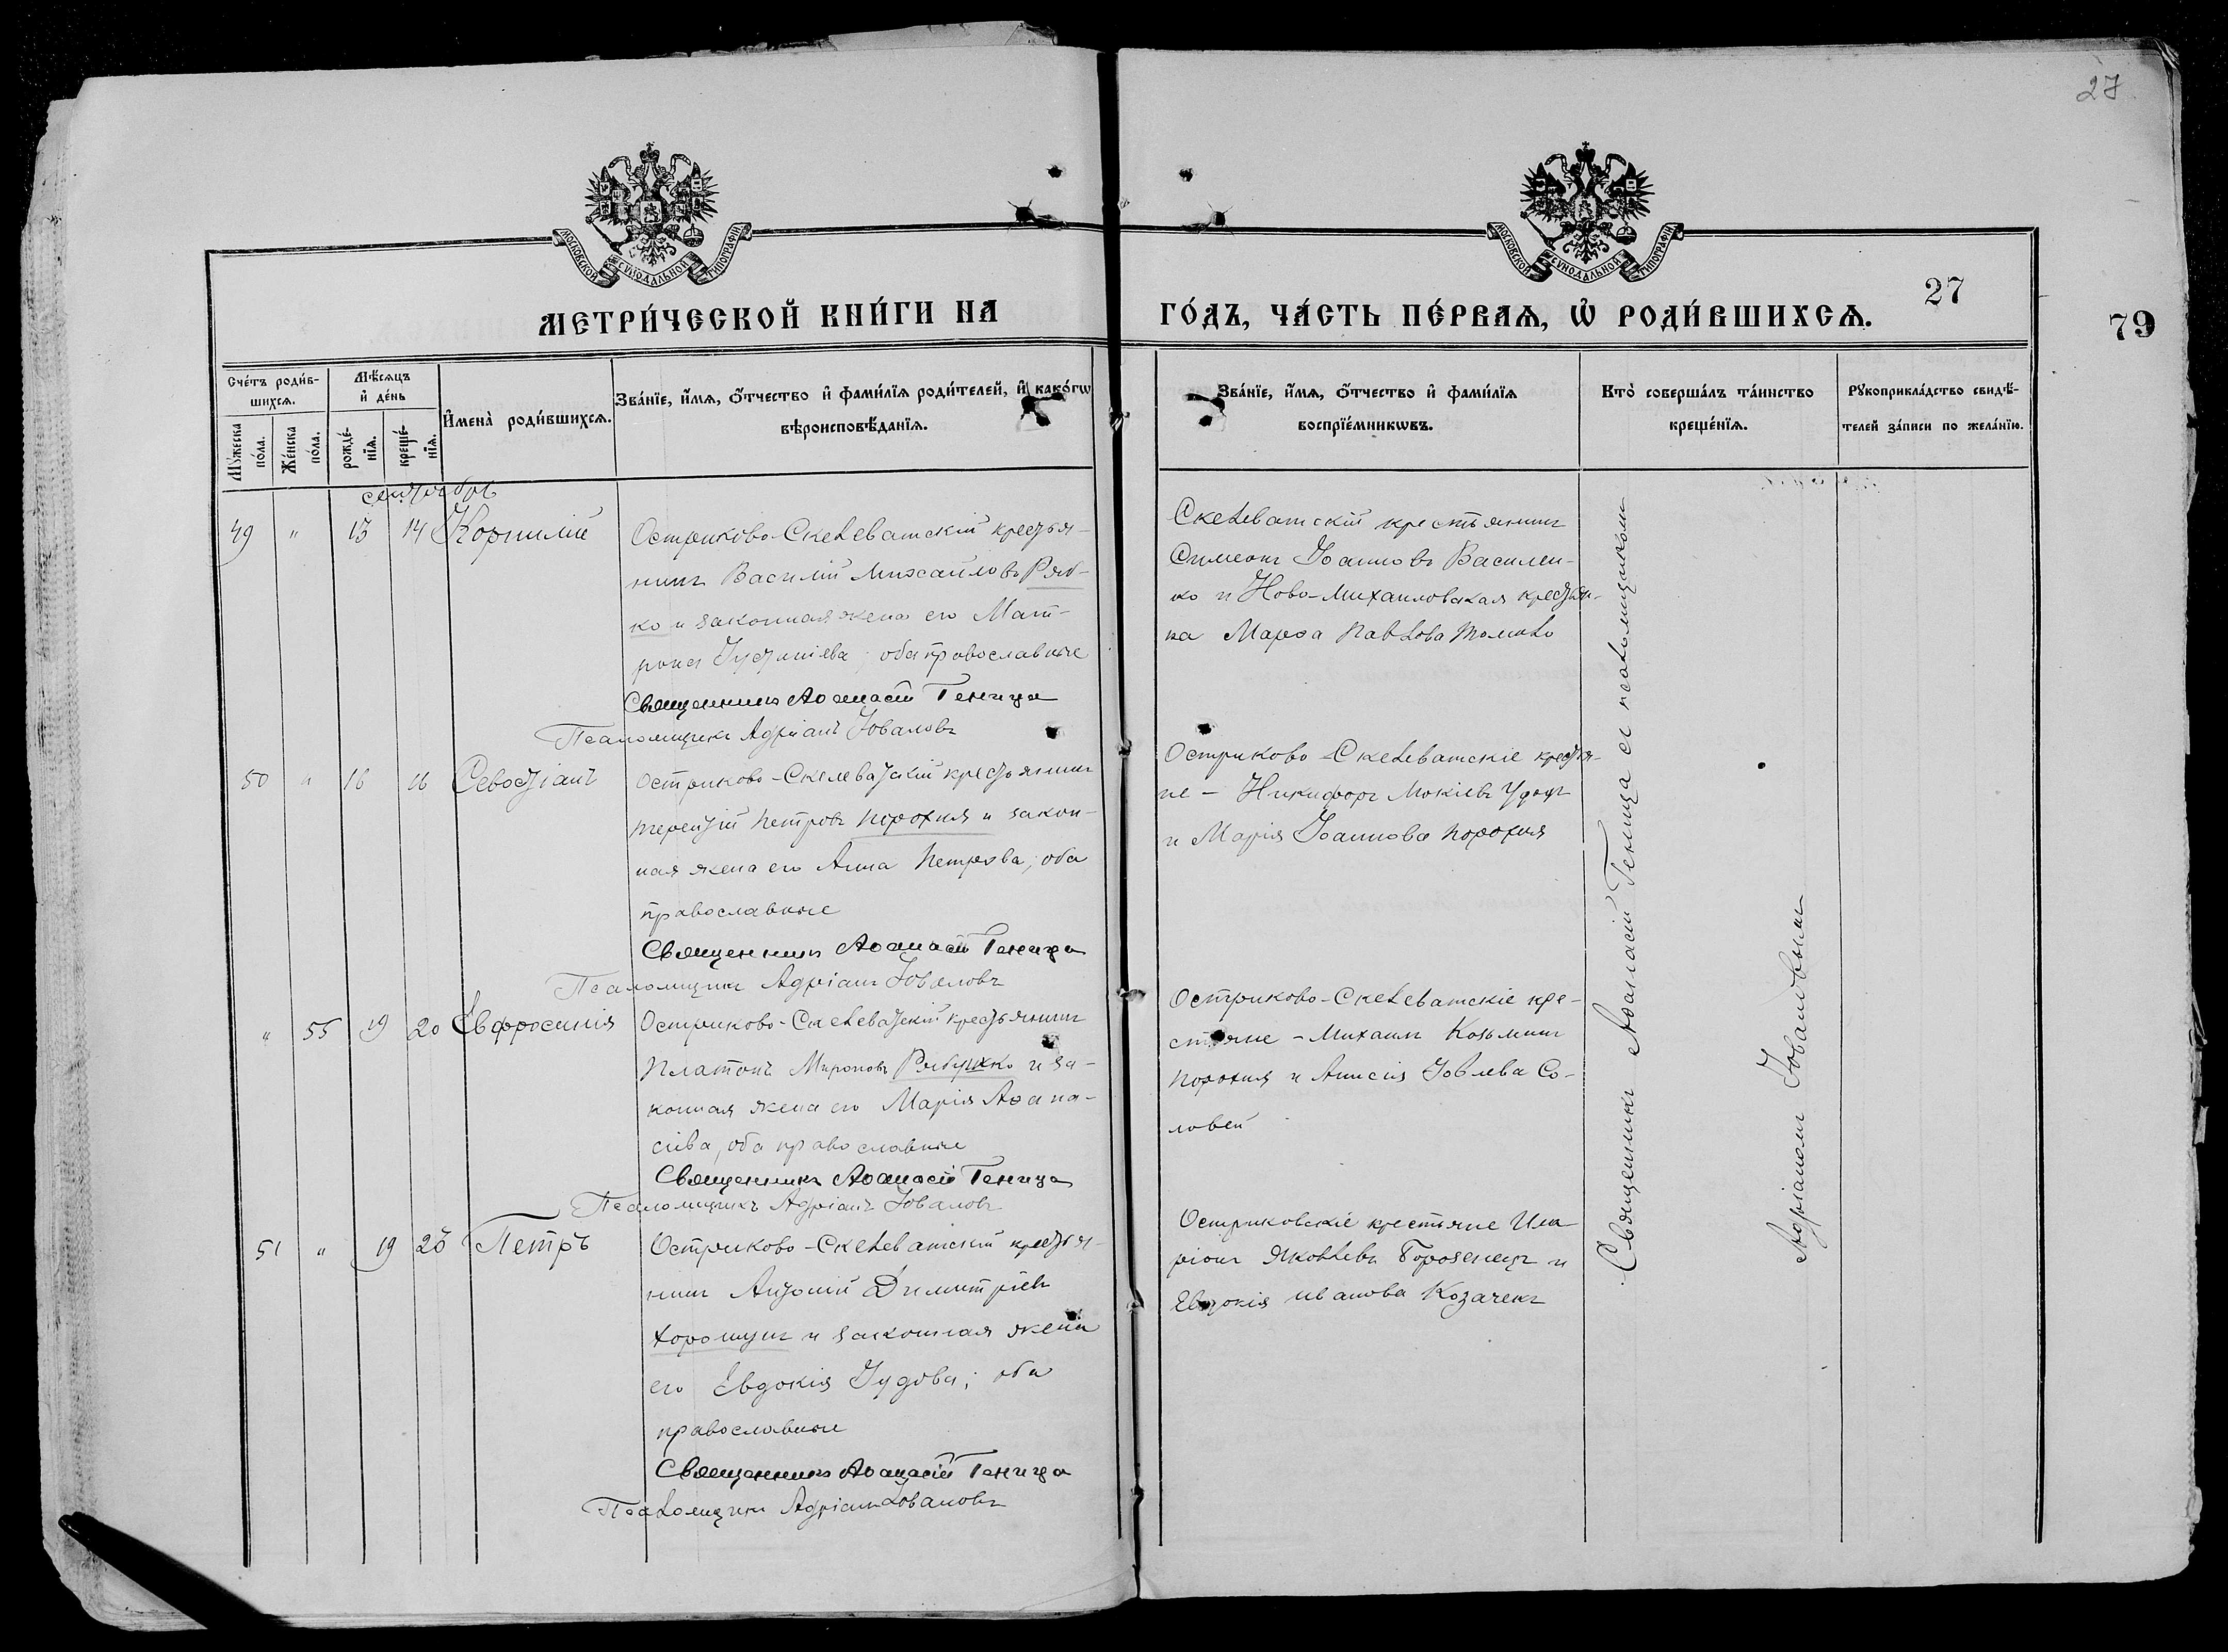 27
МОСКОВСКОЙ СѴНОДАЛЬНОЙ ТИПОГРАФІИ
МОСКОВСКОЙ СѴНОДАЛЬНОЙ ТИПОГРАФІИ
МЕТРИ́ЧЕСКОЙ КНИ́ГИ НА
ГО́ДЪ, ЧА́СТЬ ПЕ́РВАѦ, Ѡ҆ РОДИ́ВШИХСѦ.
27
79
Сче́тъ роди́в-
шихсѧ.
Мѣ́сѧцъ
и҆ де́нь
Мꙋ́жеска
по́ла.
Же́нска
по́ла.
рожде́-
нїѧ.
креще́-
нїѧ.
И҆мена̀ роди́вшихсѧ.
Зва́нїе, и҆́мѧ, о҆́тчество и҆ фами́лїѧ роди́телей, и҆ како́гѡ
вѣроисповѣ́данїѧ.
Зва́нїе, и҆́мѧ, о҆́тчество и҆ фами́лїѧ
воспрїе́мникѡвъ.
Кто̀ соверша́лъ та́инство
креще́нїѧ.
Рꙋкоприкла́дство свидѣ́-
телей за́писи по жела́нїю.
сентябрь
49 " 13 14 Корнилій
Остриково-Скелеватскій крестья-
нинъ Василій Михайловъ Ряб-
ко и законная жена его Мат-
рона Іустиніева; оба православные
Священникъ Аѳанасій Геница
Псаломщикъ Адріанъ Іовановъ
Скелеватскій крестьянинъ
Симеонъ Іоанновъ Василен-
ко и Ново-Михаиловская крестьян-
ка Марѳа Павлова
50 " 16 16 Севостіанъ
Остриково-Скелеватскій крестьянинъ
Терентій Петровъ Порохня и закон-
ная жена его Анна Петрова; оба
православные
Священникъ Аѳанасій Геница
Псаломщикъ Адріанъ Іовановъ
Остриково-Скелеватскіе крестья-
не - Никифоръ Мокіевъ Удодъ
и Марія Іоаннова Порохня
" 55 19 20 Евфросинія
Остриково-Скелеватскій крестьянинъ
Платонъ Мироновъ и за-
конная жена его Марія Аѳана-
сіева, оба православные
Священникъ Аѳанасій Геница
Псаломщикъ Адріанъ Іовановъ
Остриково-Скелеватскіе кре-
стьяне - Михаилъ Козьминъ
Порохня и Анисія Іовлева Со-
ловей
51 " 19 23 Петръ
Остриково-Скелеватскій крестья-
нинъ Антоній Димитріевъ
Хорошунъ и законная жена
его Евдокія Іудова; оба
православные
Священникъ Аѳанасій Геница
Псаломщикъ Адріанъ Іовановъ
Остриковскіе крестьяне Ила
ріонъ Яковлевъ Борозенецъ и
Евдокія Иванова Козаченъ
Священникъ Аѳанасій Геница съ псаломщикомъ
Адріаномъ Іовановымъ